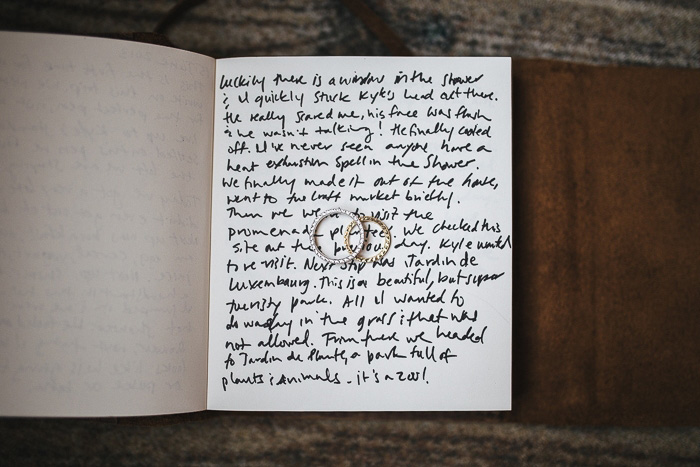 Luckily there is a window in the shower
& I quickly stuck Kyle's head out there.
He really scared me, his face was flush
& he wasn't talking! He finally cooled
off. I've never seen anyone have a
heat exhaustion spell in the shower.
We finally made it out of the house,
went to the craft market briefly.
Then we we to visit the
promenade plantee. We checked this
site out the previous day. Kyle wanted
to re visit. Next stop was Jardin de
Luxembourg. This is a beautiful, but super
touristy park. All I wanted to
do was lay in the grass & that was
not allowed. From there we headed
to Jardin de Plante, a park full of
plants & animals - it's a zoo!